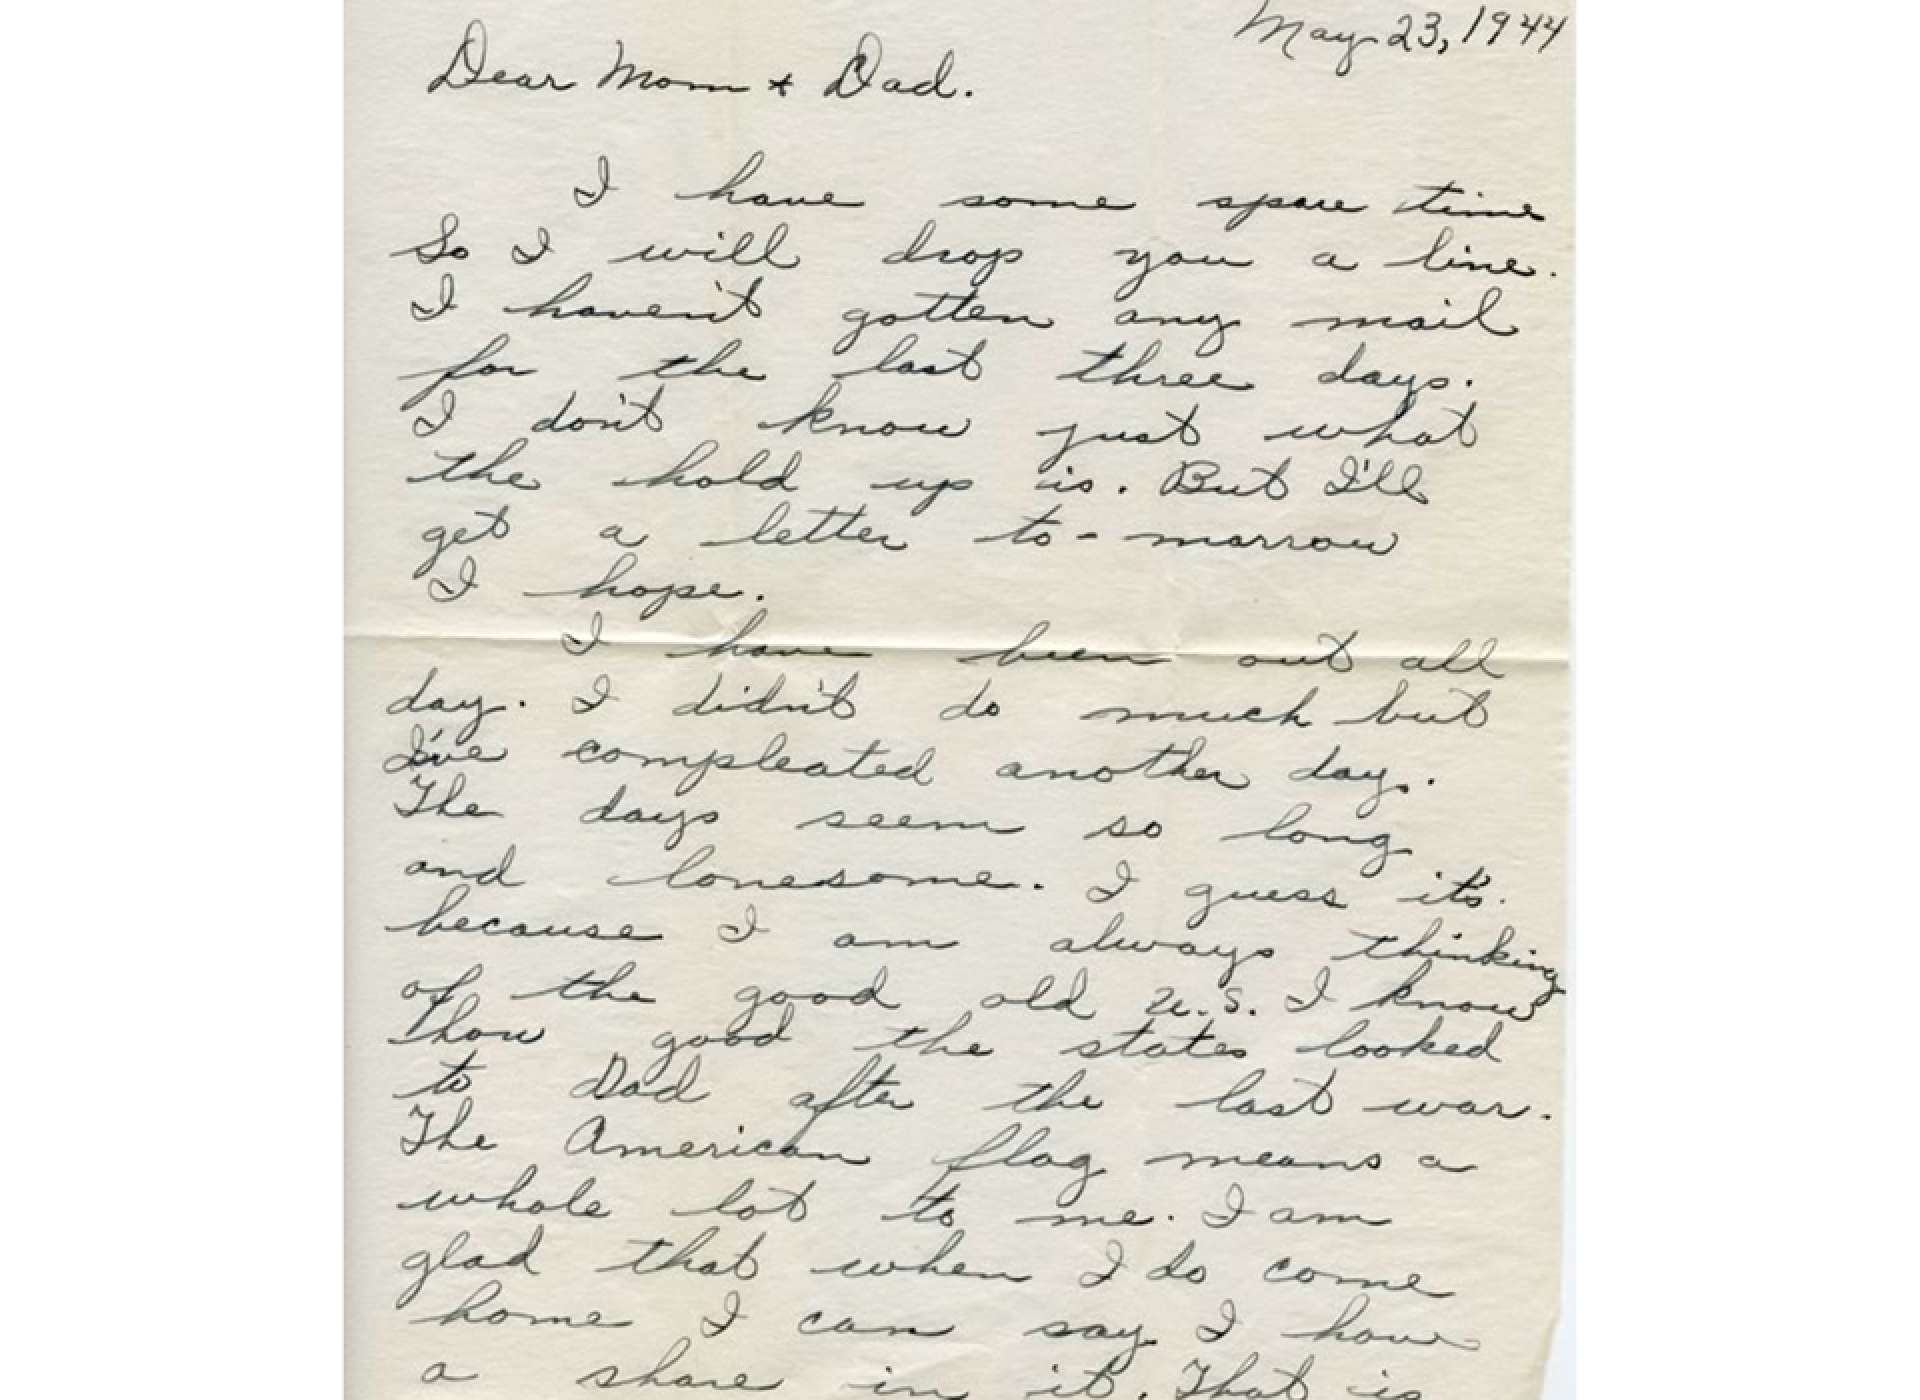 May 23, 1944
Dear Mom + Dad.
I have some spare time
So I will drop you a line.
I haven't gotten any mail
for the last three days.
I don't know just what
the hold up is. But I'll
get a letter to-morrow
I hope.
I have been out all
day. I didn't do much but
I've compleated another day.
The days seem so long
and lonesome. I guess it's
because I am always thinking
of the good old U.S. I know
how good the states looked
to Dad after the last war.
The American flag means a
whole lot to me. I am
glad that when I do come
home I can say I have
a share in it. That is